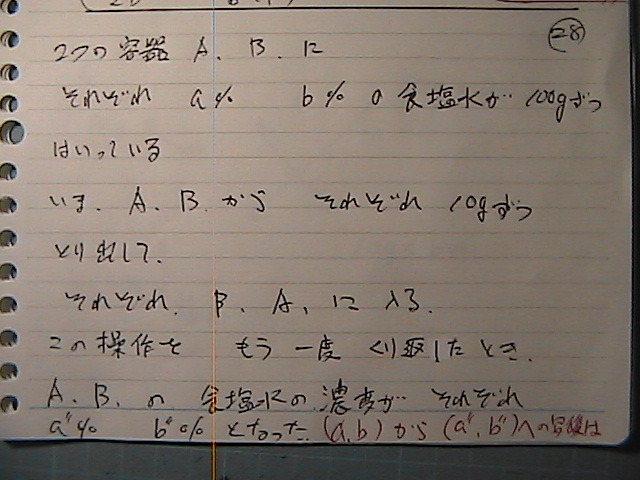 28
2つの容器 A、B、に
それぞれ a% b% の食塩水が 100gずつ
はいっている
いま、A、B、から それぞれ 10gずつ
とり出して、
それぞれ、B、A、に入る、
この操作を もう一度 くり返したとき、
A、B、の 食塩水の濃度が それぞれ
a"% b"% となった、(a,b) から (a",b")への写像は